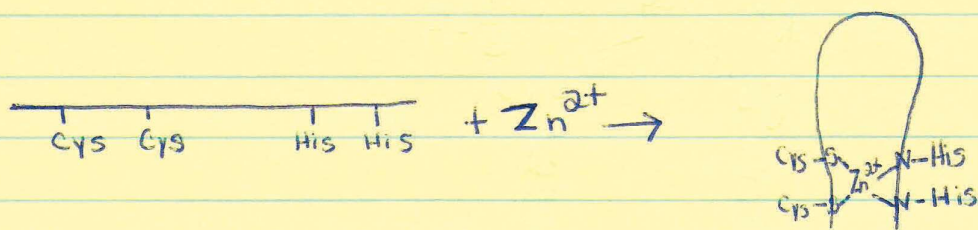 Cys Cys His His + Zn²⁺ →
Cys-S N-His
Zn²⁺
Cys-S N-His